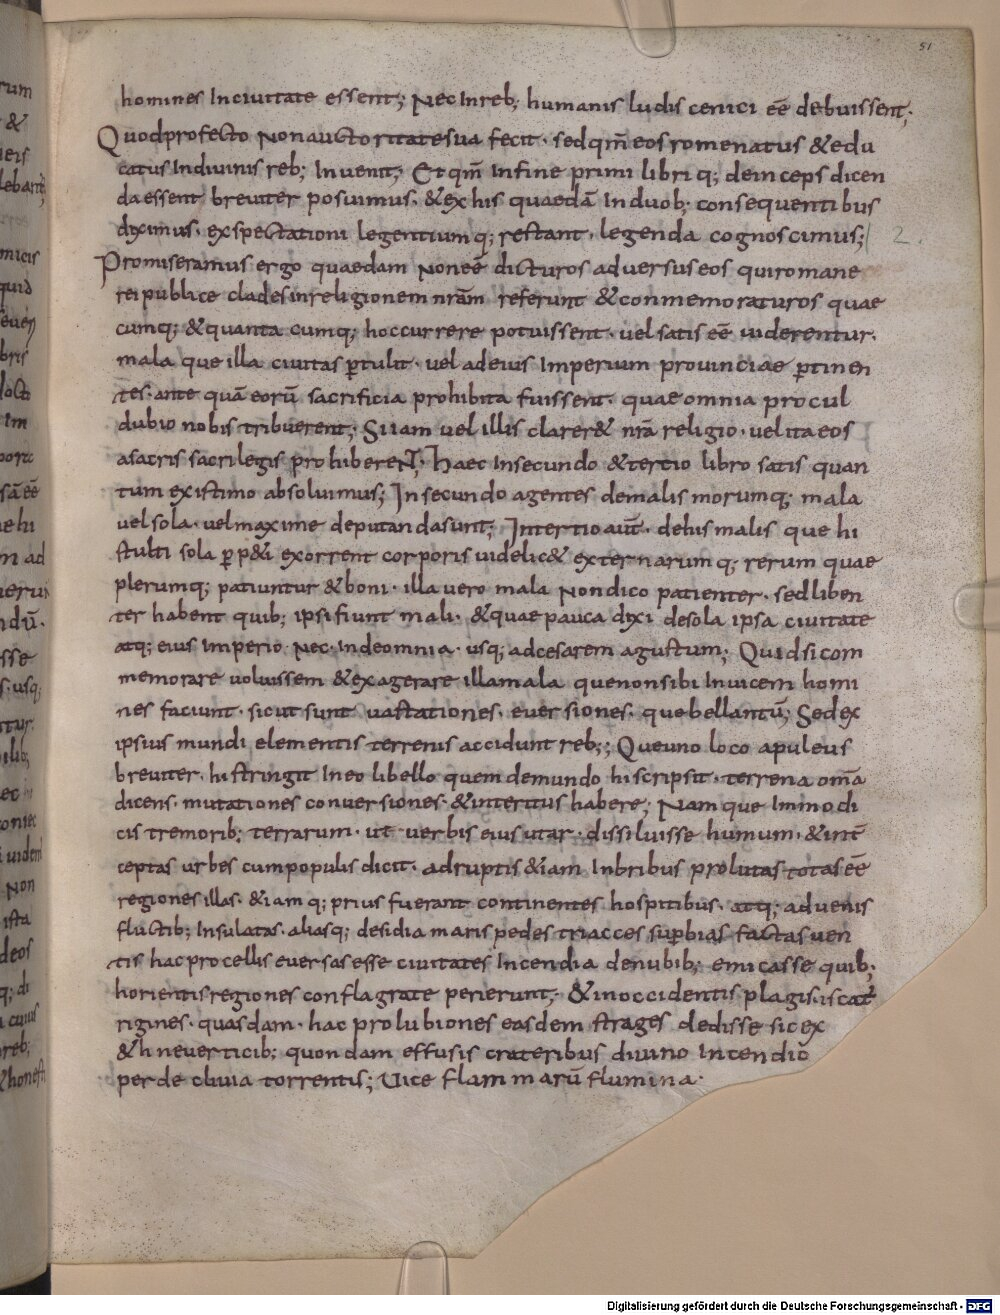 51
homines Inciuitate essent; Nec Inreb; humanis ludis cenici eē debuissent;
Quodprofecto Nonauctoritatesua fecit · sedqm̄ eos romenatus & edu
catus Indiuinis reb; Inuenit; Et qm̄ Infine primi libri q; deinceps dicen
da essent breuiter posuimus · & ex his quaedā Induob; consequentibus
diximus · exspectationi legentium q; restant · legenda cognoscimus; 2.
Promiseramus ergo quaedam Noneē dicturos aduersus eos quiromane
rei publice cladesinreligionem nrām referunt & conmemoraturos quae
cumq; & quanta cumq; hoccurrere potuissent · uel satis eē uiderentur ·
mala que illa ciuitas ꝑtulit · uel adeius Imperium prouinciae ꝑtinen
tes · ante quā eorū sacrificia prohibita fuissent · quae omnia procul
dubio nobis tribuerent; Si iam uel illis clarer& nrā religio · uel ita eos
asacris sacrilegis prohiberent; Haec Insecundo & tertio libro satis quan
tum existimo absoluimus; Insecundo agentes demalis morumq; mala
uel sola · uel maxime deputanda sunt; Intertio aut̄ · dehis malis que hi
stulti sola ꝑp&i exorrent corporis uidelic& externarum q; rerum quae
plerumq; patiuntur & boni · illa uero mala Nondico patienter · sed liben
ter habent quib; ipsi fiunt mali · & quae pauca dixi desola ipsa ciuitate
atq; eius Imperio · Nec · Indeomnia · usq; adcesarem agustum; Quid si com
memorare uoluissem & exagerare illa mala quenonsibi Inuicem homi
nes faciunt · sicut sunt uastationes · euersiones · quebellantū; Sed ex
ipsius mundi elementis terrenis accidunt reb;; Queuno loco apuleus
breuiter · histringit Ineo libello quem demundo hiscripsit · terrena om̄a
dicens · mutationes conuersiones · & interitus habere; Nam que Inmodi
cis tremorib; terrarum · ut uerbis eius utar · dissiluisse humum · & int̄
ceptas urbes cumpopulis dicit · adruptis & iam Inbribus prolutas totas eē
regiones illas · & iam q; prius fuerant continentes hospitibus · atq; aduenis
fluctib; Insulatas · aliasq; desidia maris pedes triacces suꝑbias factas uen
tis hac procellis euersas esse ciuitates Incendia denubib; emicasse quib;
horientis regiones conflagrate perierunt; & inoccidentis plagis · iscat
rigines · quasdam · hac prolubiones easdem strages dedisse sic ex
& hneuerticib; quondam effusis crateribus diuino Incendio
perdecliuia torrentis; Uice flammarū flumina ·
Digitalisierung gefördert durch die Deutsche Forschungsgemeinschaft - DFG